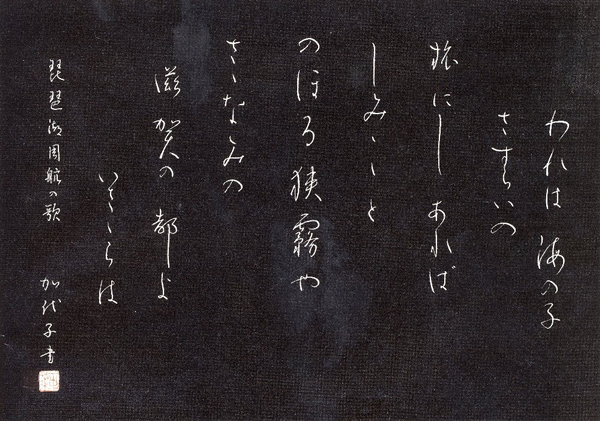 われは 海の子
さすらいの
旅にし あれば
しみじみと
のぼる 狭霧や
さゞなみの
滋賀の 都よ
いざさらば
琵琶湖周航の歌
加代子書